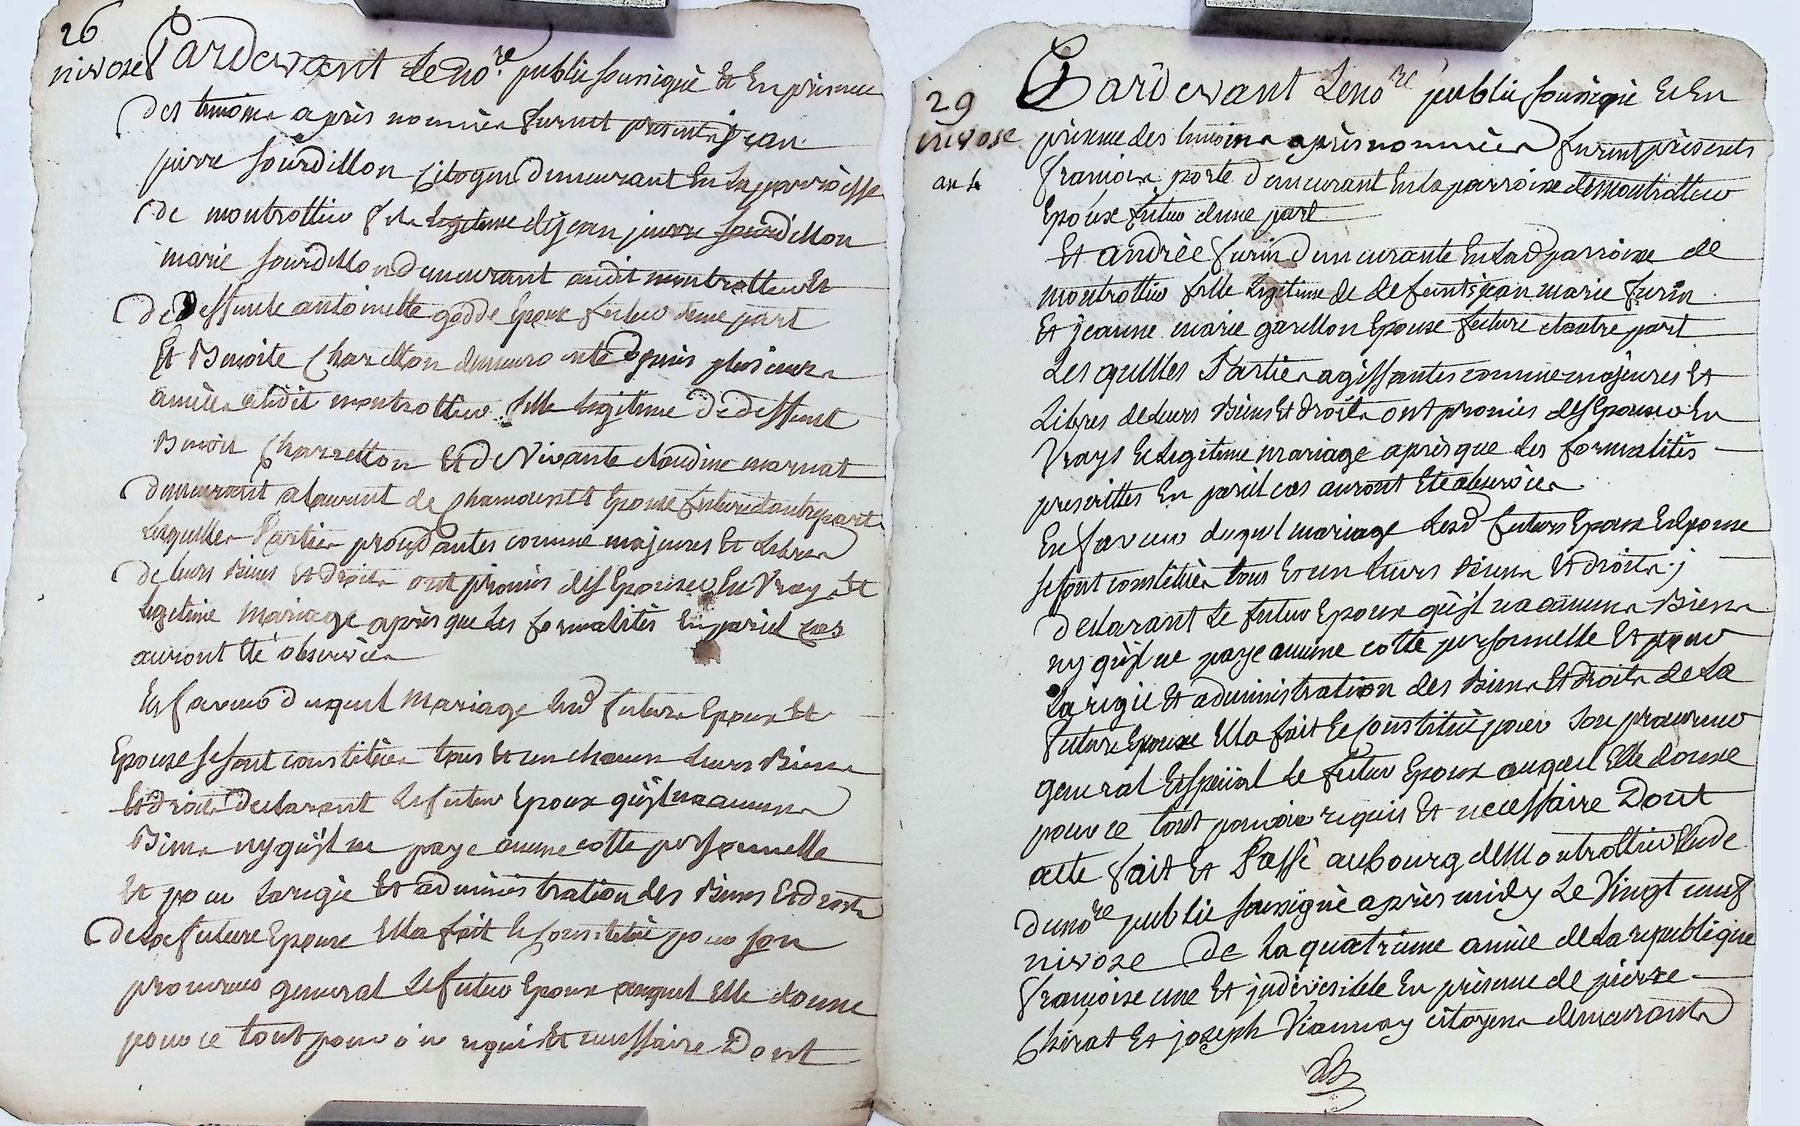 26
nivose
Pardevant Le no.re public soussigné Et En présence
des temoins après nommés furent présents jean
pierre Sourdillon Citoyen Demeurant En la parroisse
De montrottier fils legitime de jean pierre sourdillon
marie Sourdillon Demeurant audit montrottier Et
De Deffunte antoinette gadde Epoux futur d'une part
Et Benoite Charetton demeurante depuis plusieurs
années audit montrottier fille legitime De deffunt
Benoit Charretton Et De Vivante claudine marnat
demeurant a laurent de chamousset Epouse future d'autre part
Lesquelles Parties procedantes comme majeures Et Libres
De leurs Biens Et droits ont promis de s'Epouser En Vray Et
legitime Mariage après que les formalités En pareil cas
auront été observées
En faveur duquel Mariage lesd. futurs Epoux Et
Epouse se sont constitués tous Et un chacun leurs Biens
Et droits Declarant Le futur Epoux qu'il n'a aucuns
Biens ny qu'il ne paye aucune cotte personnelle
Et pour la régie Et administration des Biens Et droits
De la future Epouse Ella fait Et Constitué pour son
procureur general Le futur Epoux auquel Elle donne
pour ce tout pouvoir requis Et necessaire Dont
29
nivose
an 4
Pardevant Le no.re public soussigné Et En
présence des temoins après nommés furent présents
francois porte Demeurant En la parroisse de montrottier
Epoux futur d'une part
Et andrée furin demeurante En lad. parroisse de
montrottier fille legitime de defunts jean marie furin
Et jeanne marie garellon Epouse future d'autre part
Lesquelles Parties agissantes comme majeures Et
Libres de leurs Biens Et droits ont promis de s'Epouser En
Vrays Et legitime mariage après que les formalités
prescrittes En pareil cas auront Eté observées
En faveur duquel mariage Lesd. futurs Epoux Et Epouse
se sont constitués tous Et un leurs Biens Et droits ;
declarant Le futur Epoux qu'il n'a aucuns Biens
ny qu'il ne paye aucune cotte personnelle Et pour
La régie Et administration des Biens Et droits de La
future Epouse Ella fait Et Constitué pour son procureur
general Et special Le futur Epoux auquel Elle donne
pour ce tout pouvoir requis Et necessaire Dont
acte fait Et Passé au bourg de Montrottier Etude
du no.re public soussigné après midy Le Vingt neuf
nivose De La quatrieme année de La republique
francoise une Et indivisible En présence de pierre
Chirat Et joseph Viannay citoyens demeurants